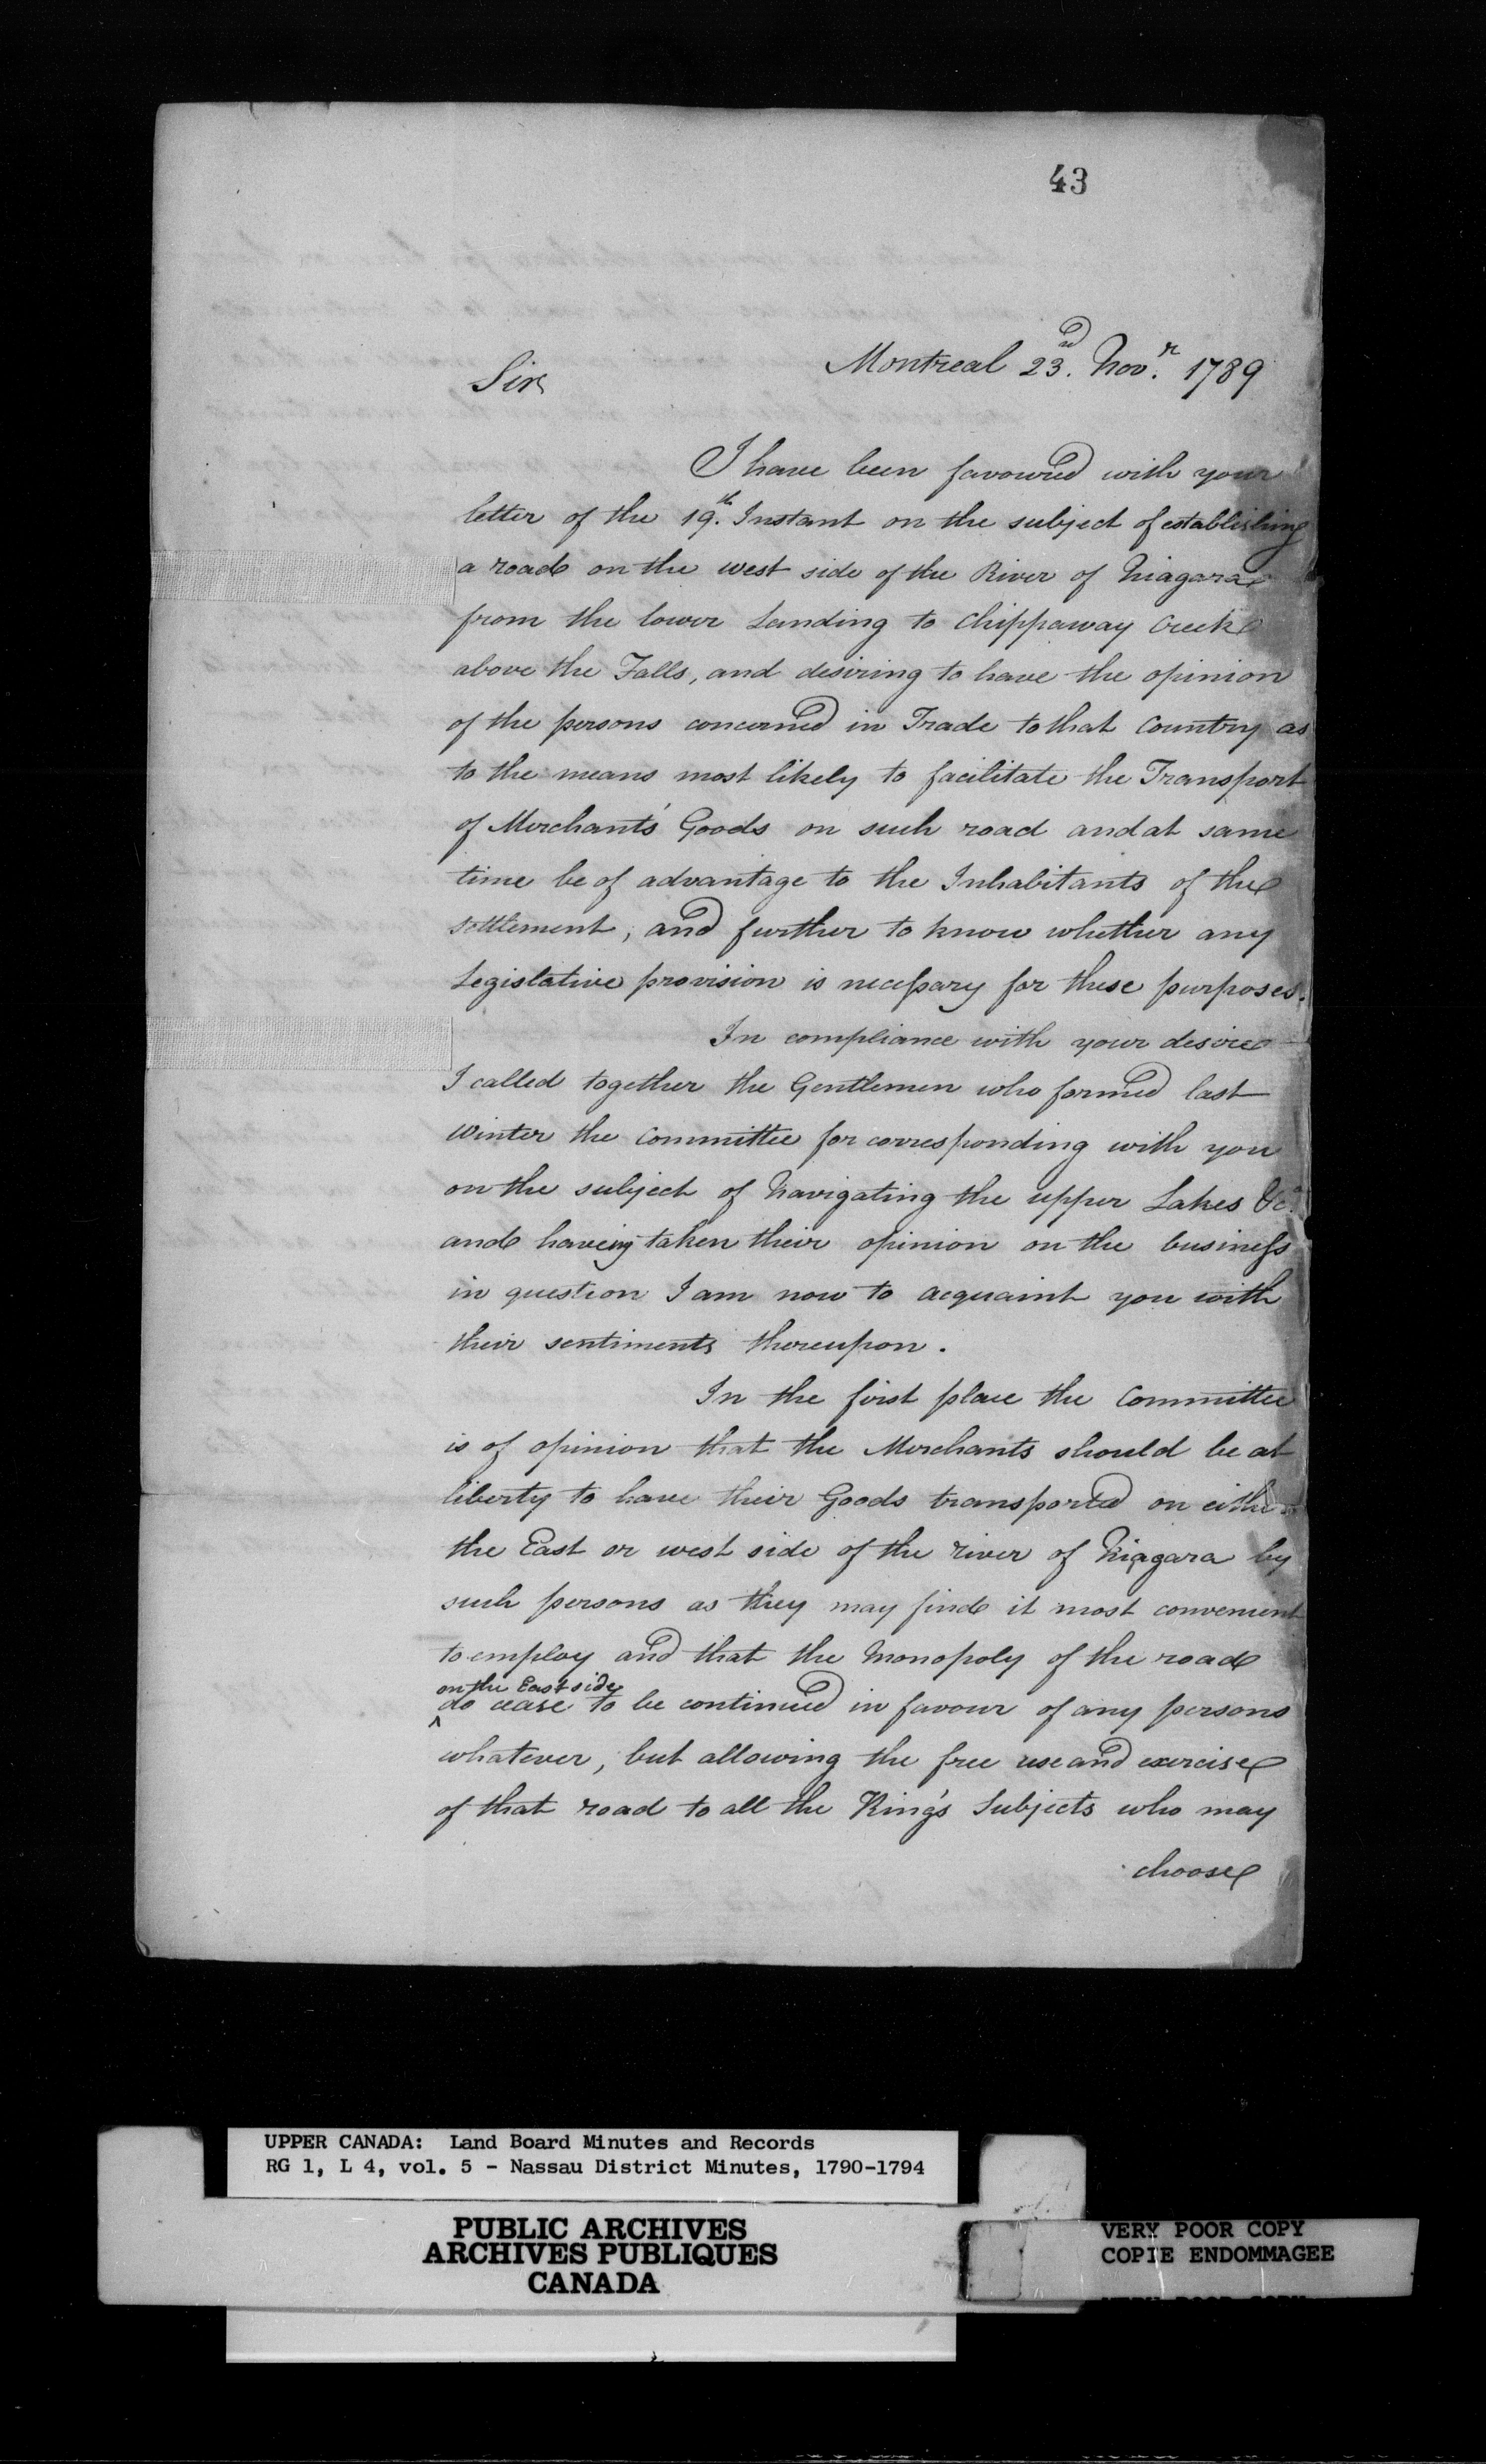 43
Montreal 23.rd Nov.r 1789
Sir
I have been favoured with your
letter of the 19.th Instant on the subject of establishing
a road on the west side of the River of Niagara
from the lower Landing to Chippaway Creek
above the Falls, and desiring to have the opinion
of the persons concerned in Trade to that Country as
to the means most likely to facilitate the Transport
of Merchants' Goods on such road and at same
time be of advantage to the Inhabitants of the
settlement; and further to know whether any
Legislative provision is necessary for these purposes.
In compliance with your desire
I called together the Gentlemen who formed last
Winter the Committee for corresponding with you
on the subject of Navigating the upper Lakes &c.a
and having taken their opinion on the business
in question I am now to acquaint you with
their sentiments thereupon.
In the first place the Committee
is of opinion that the Merchants should be at
liberty to have their Goods transported on either
the East or west side of the river of Niagara by
such persons as they may find it most convenient
to employ and that the Monopoly of the road
on the East side
^ do cease to be continued in favour of any persons
whatever, but allowing the free use and exercise
of that road to all the King's Subjects who may
choose
UPPER CANADA: Land Board Minutes and Records
RG 1, L 4, vol. 5 - Nassau District Minutes, 1790-1794
PUBLIC ARCHIVES
ARCHIVES PUBLIQUES
CANADA
VERY POOR COPY
COPIE ENDOMMAGEE